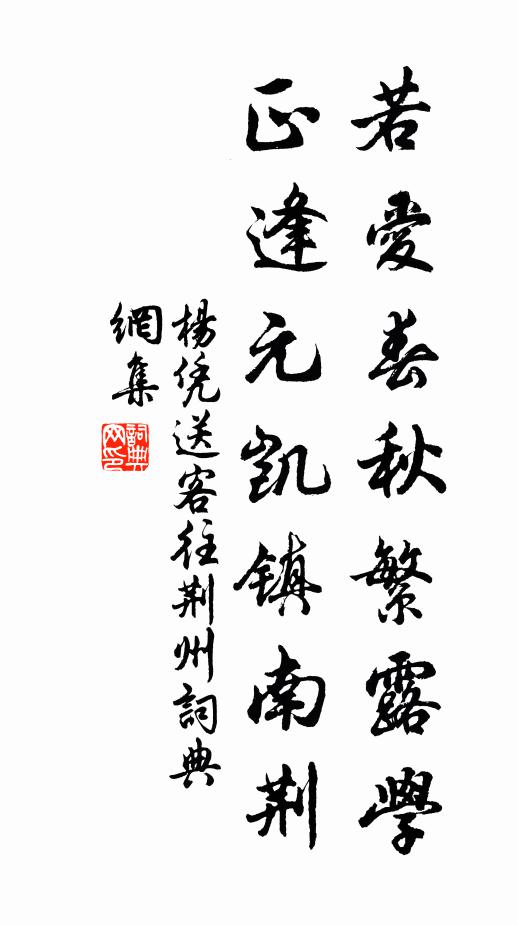 若愛春秋繁露學
正逢元凱鎮南荆
楊凭送客往荆州詞典
網集
詞典
网印